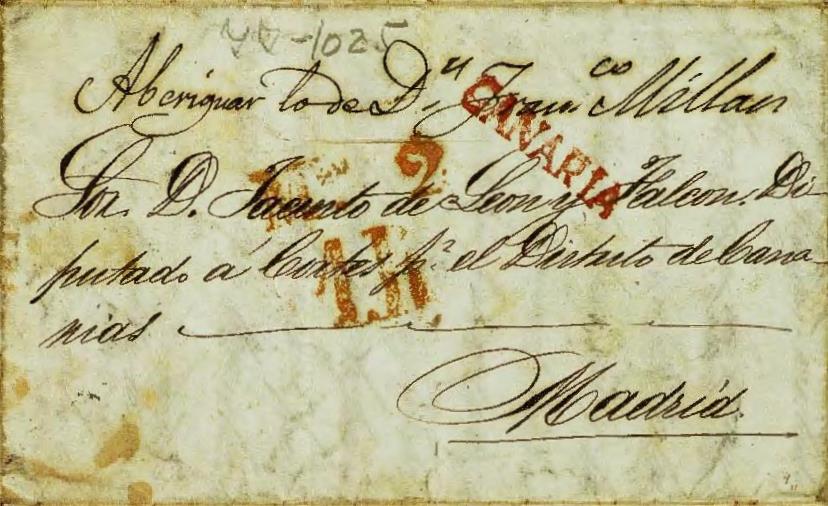 Aberiguar lo de D.n Fran.co Millan
CANARIA
2
Sor. D. Jacinto de Leon y Falcon. Di-
putado á Cortes p.r el Distrito de Cana-
rias
Madrid.